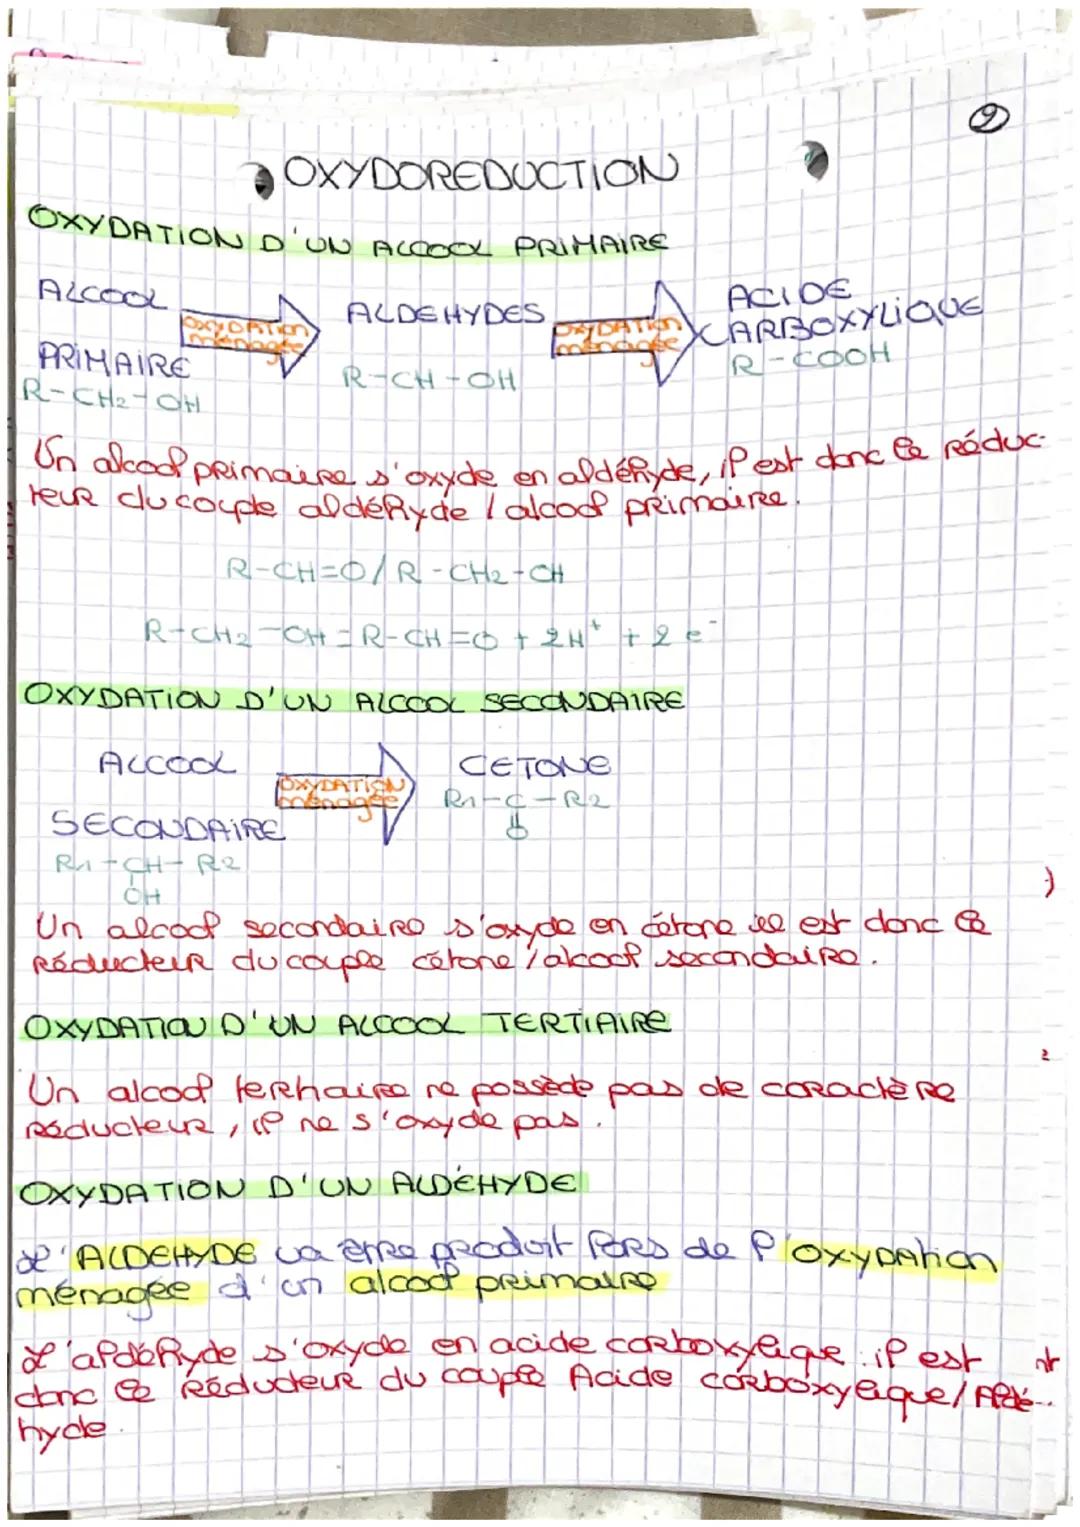 2
OXYDOREDUCTION
OXYDATION D'UN ALCOOL PRIMAIRE
ALCOOL
PRIMAIRE
R-CH2-OH
OXYDATION
ménagée
ALDEHYDES
R-CH-OH
OXYDATION
ménagée
ACIDE
CARBOXYLIQUE
R-COOH
Un alcool primaire s'oxyde en aldéhyde, il est donc le réduc-
teur du couple aldéhyde / alcool primaire.
R-CH=O/R-CH2-OH
R-CH2-OH=R-CH=O + 2H+ + 2e-
OXYDATION D'UN ALCOOL SECONDAIRE
ALCOOL
SECONDAIRE
R1-CH-R2
OH
OXYDATION
ménagée
CETONE
R1-C-R2
O
Un alcool secondaire s'oxyde en cétone il est donc le
réducteur du couple cétone / alcool secondaire.
OXYDATION D'UN ALCOOL TERTIAIRE
Un alcool tertiaire ne possède pas de caractère
réducteur, il ne s'oxyde pas.
OXYDATION D'UN ALDÉHYDE
L'ALDEHYDE va être produit lors de l'OXYDAtion
ménagée d'un alcool primaire
L'aldéhyde s'oxyde en acide carboxylique il est
donc le réducteur du couple Acide carboxylique / Aldé-
hyde.